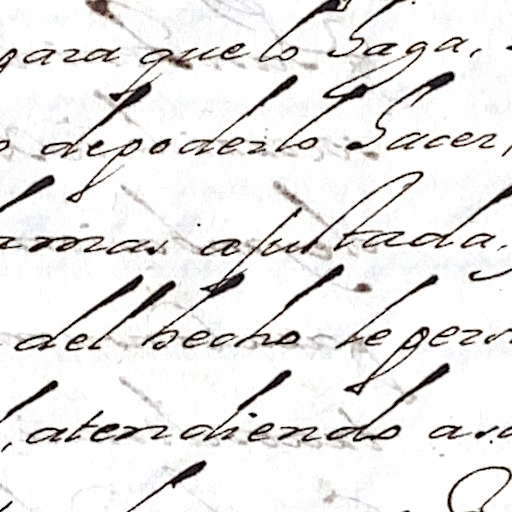 para que lo haga,
depoderlo hacer,
mas ajustada,
del hecho le per
atendiendo a